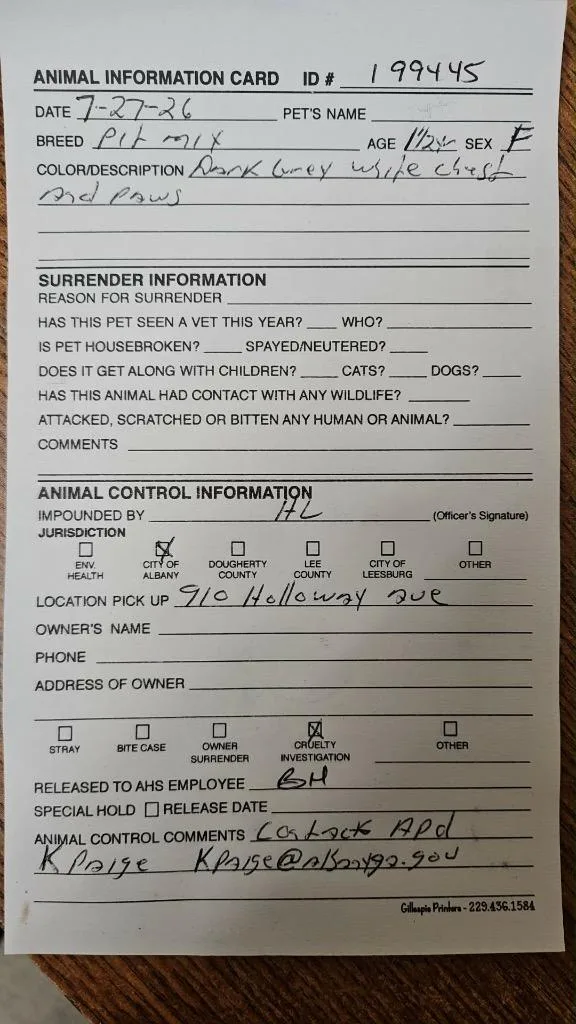 ANIMAL INFORMATION CARD ID # 199445
DATE 7-27-26 PET'S NAME
BREED Pit mix AGE 1 1/2yr SEX F
COLOR/DESCRIPTION Dark Grey white chest
and paws
SURRENDER INFORMATION
REASON FOR SURRENDER
HAS THIS PET SEEN A VET THIS YEAR? WHO?
IS PET HOUSEBROKEN? SPAYED/NEUTERED?
DOES IT GET ALONG WITH CHILDREN? CATS? DOGS?
HAS THIS ANIMAL HAD CONTACT WITH ANY WILDLIFE?
ATTACKED, SCRATCHED OR BITTEN ANY HUMAN OR ANIMAL?
COMMENTS
ANIMAL CONTROL INFORMATION
IMPOUNDED BY HL (Officer's Signature)
JURISDICTION
ENV. HEALTH
CITY OF ALBANY
DOUGHERTY COUNTY
LEE COUNTY
CITY OF LEESBURG
OTHER
LOCATION PICK UP 910 Holloway ave
OWNER'S NAME
PHONE
ADDRESS OF OWNER
STRAY
BITE CASE
OWNER SURRENDER
CRUELTY INVESTIGATION
OTHER
RELEASED TO AHS EMPLOYEE BH
SPECIAL HOLD RELEASE DATE
ANIMAL CONTROL COMMENTS Contact APD
K Paige KPaige@albanyga.gov
Gillespie Printers - 229.436.1584